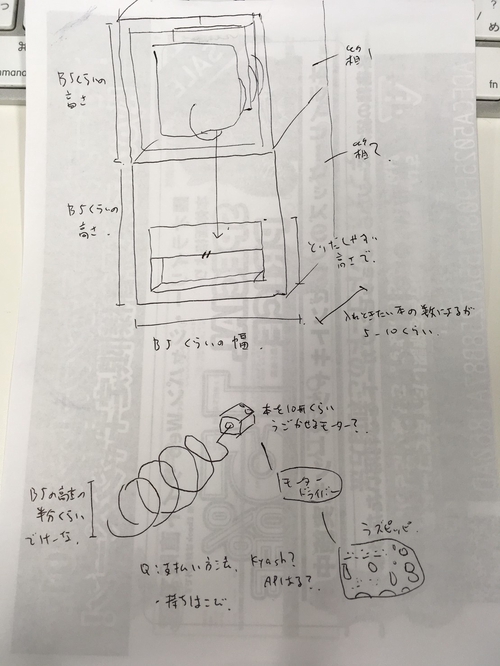 B5くらいの
高さ
箱1
B5くらいの
高さ.
箱2
とりだしやすい
高さで.
入れときたい本の数によるが
5-10くらい.
B5くらいの幅.
本を10冊くらい
うごかせるモーター?
B5の高さの
半分くらい
でけーな.
モーター
ドライバー
ラズピッピ
Q:支払い方法. Kyash?
APIはる?
・持ちはこび.
command
fn
め